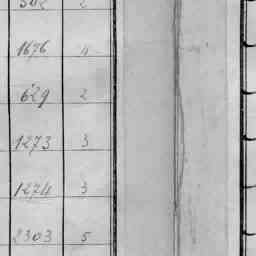 502 2
1676 4
629 2
1273 3
1274 3
2303 5